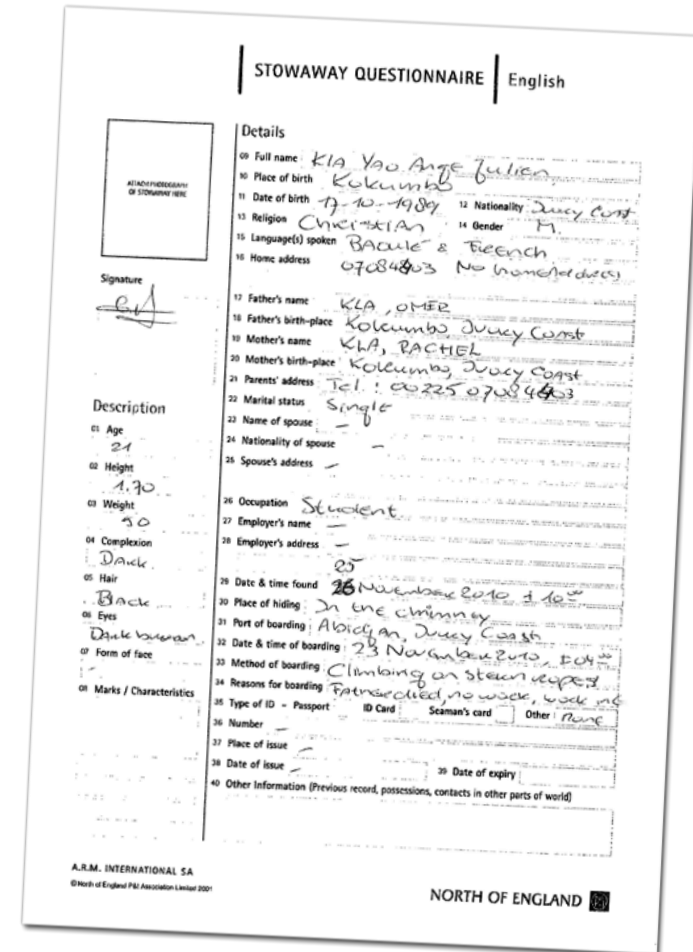 STOWAWAY QUESTIONNAIRE English
ATTACH PHOTOGRAPH
OF STOWAWAY HERE
Signature
Description
01 Age
21
02 Height
1.70
03 Weight
50
04 Complexion
Dark
05 Hair
Black
06 Eyes
Dark brown
07 Form of face
-
08 Marks / Characteristics
Details
09 Full name KLA Yao Ange Julien
10 Place of birth Kokumbo
11 Date of birth 17-10-1989 12 Nationality Ivory Coast
13 Religion Christian 14 Gender M.
15 Language(s) spoken BAoulé & French
16 Home address 07084803 No home address
17 Father's name KLA, OMER
18 Father's birth-place Kokumbo, Ivory Coast
19 Mother's name KLA, RACHEL
20 Mother's birth-place Kokumbo, Ivory Coast
21 Parents' address Tel.: 00225 07084803
22 Marital status Single
23 Name of spouse -
24 Nationality of spouse -
25 Spouse's address -
26 Occupation Student
27 Employer's name -
28 Employer's address -
25
29 Date & time found 26 November 2010 ± 10 00
30 Place of hiding In the chimney
31 Port of boarding Abidjan, Ivory Coast
32 Date & time of boarding 23 November 2010,
33 Method of boarding Climbing on stern ropes
34 Reasons for boarding Father died, no work,
35 Type of ID - Passport ID Card Seaman's card Other None
36 Number -
37 Place of issue -
38 Date of issue - 39 Date of expiry
40 Other Information (Previous record, possessions, contacts in other parts of world)
A.R.M. INTERNATIONAL SA
© North of England P&I Association Limited 2001
NORTH OF ENGLAND